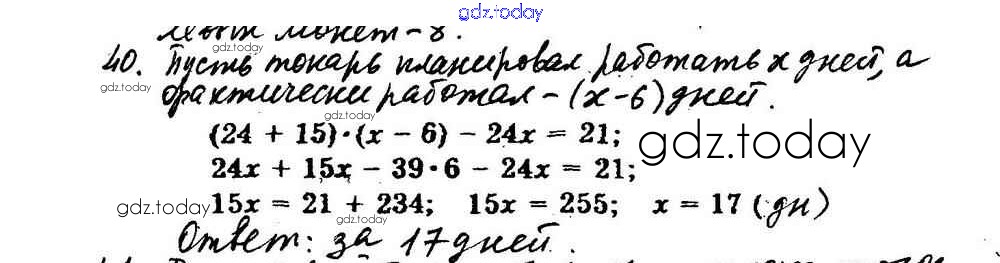 gdz.today
может – 8.
gdz.today
40. Пусть токарь планировал работать x дней, а
gdz.today
фактически работал – (x – 6) дней.
(24 + 15)·(x – 6) – 24x = 21;
gdz.today
24x + 15x – 39·6 – 24x = 21;
gdz.today
gdz.today
15x = 21 + 234; 15x = 255; x = 17 (дн)
gdz.today
Ответ: за 17 дней.